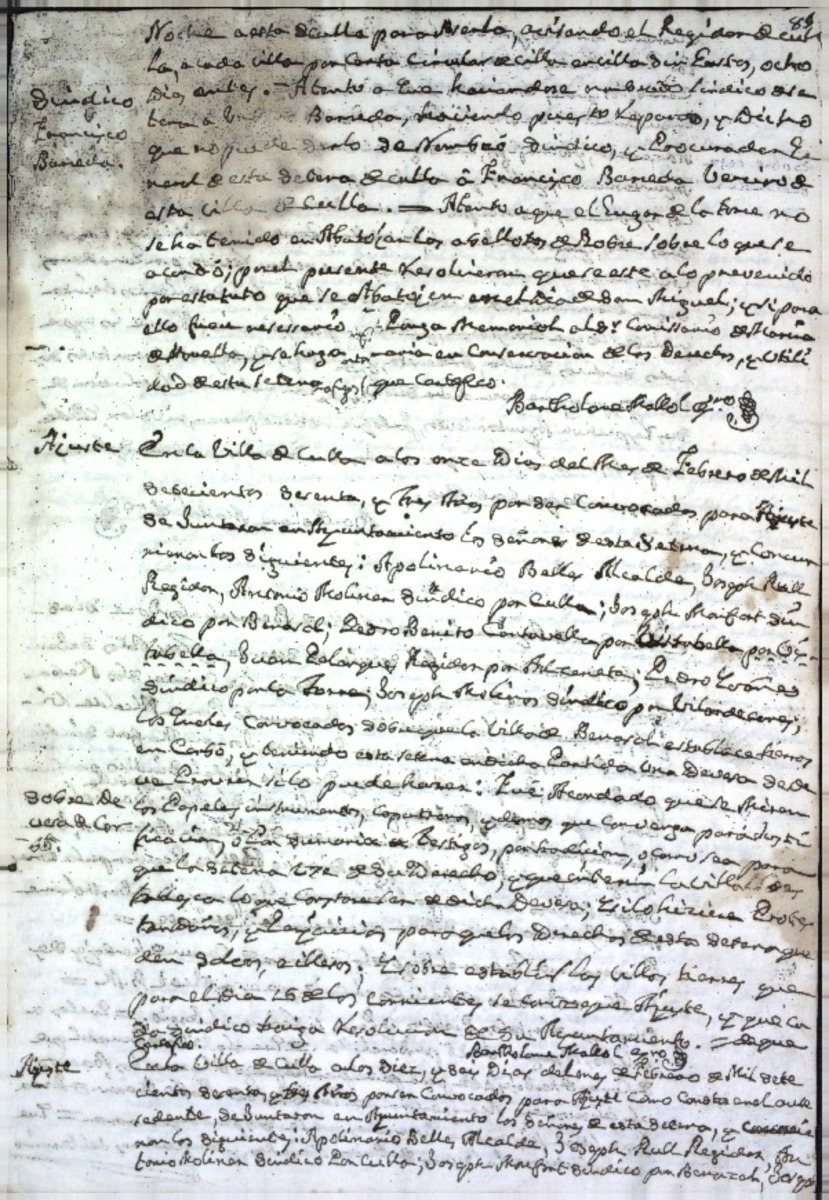 89
Noche a esta de Culla para Renta, avisando el Regidor de Cull
la, a cada Villa por Carta Circular de Culla en cilla din Gastos, ocho
Dias antes. = Atento a que haviendose nombrado Sindico de se
tena a Barreda, haviendo puesto reparos, y Dicho
que no puede serlo se Nombró Sindico, y Procurador Ge
neral de esta Setena de Culla â Francisco Barreda Vecino de
esta Villa de Culla. = Atento a que el Lugar de la Torre no
se ha tenido en Abatojan los a bellotas de Robre sobre lo que se
acordó; por el presente resolvieron que se este a lo prevenido
por estatuto que se Abatojen en el Dia de San Miguel; y si para
ello fuere nesessario haga Memorial al Sr. Comissario de Marina
de Murella, y se haga en Conservacion de los Derechos, y Utili
dad de esta Setena que Certifico.
Bartholome Mallol esno
Sindico
Francisco
Barreda.
Ajuste
En la Villa de Culla a los once Dias del Mes de Febrero de Mil
setecientos sesenta, y Tres Años por ser Convocados para Ajuste
se Juntaron en Ayuntamiento los Señores de esta Setena, y Concur
rieron los siguientes: Apolinario Belles Alcalde, Joseph Rull
Regidor, Antonio Moliner Sindico por Culla; Joseph Monfort Sin
dico por Benasal; Pedro Benito Cantavella por Vistabella por Vis
tabella, Juan Regidor por Alcaneta; Pedro Ivañes
Sindico por la Torre; Joseph Moliner Sindico por Vilardecanes;
los Queles Convocados sobre que la Villa de Benasal establece tierras
en Corbó, y teniendo esta setena en dicha Partida Una Devesa se de
ve Prover si lo puede hazer: Fué Acordado que se Miren
los Papeles instrumentos, capatrons, y demas que convenga para Justi
ficacion, ó Con Sumaria de Testigos, por tradicion, o como sea para
que la Setena Uze de Su Derecho, y que interin la Villa de es
tablesca lo que de dicha Devesa; y si lo hiziere Protes
tandoles, y para que los Derechos de esta Setena que
den Salvos, e illesos; Y sobre establir las Villas tierras que
para el Dia 16 de los Corrientes se tenga Ajuste, y que ca
da Sindico traiga Resolucion de Su Ayuntamiento. = de que
Certifico.
Bartholome Mallol esno
Sobre De
vesa de Cor
bó.
Ajuste
En la Villa de Culla a los Diez, y seis Dias del mes de Febrero de Mil sete
cientos sesenta, y tres Años por ser Convocados para Ajuste Como Consta en el ante
sedente, se Juntaron en Ayuntamiento los Señores de esta Setena, y Concurrie
ron los siguientes: Apolinario Belles Alcalde, Joseph Rull Regidor, An
tonio Moliner Sindico Por Culla; Joseph Monfort Sindico por Benazal; Joseph